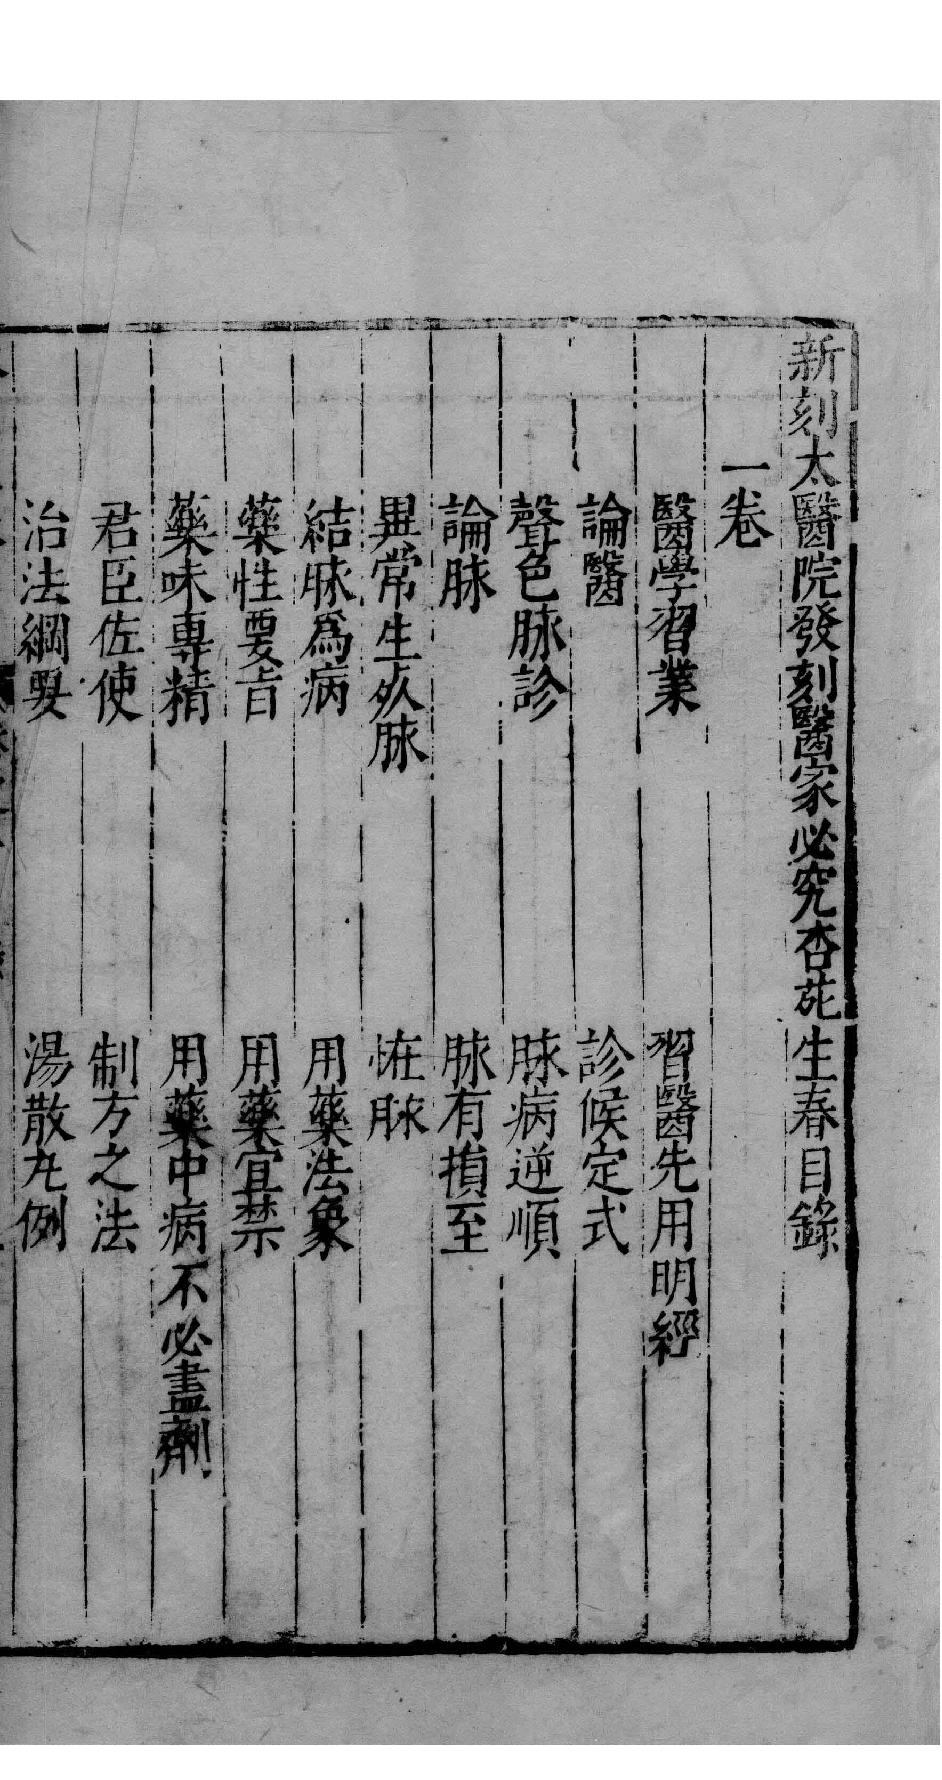 新刻太醫院發刻醫家必究杏苑生春目錄
一卷
醫學習業　習醫先用明經
論醫　診候定式
聲色脉診　脉病逆順
論脉　脉有損至
異常生死脉　恠脉
結脉爲病　用藥法象
藥性要旨　用藥宜禁
藥味專精　用藥中病不必盡劑
君臣佐使　制方之法
治法綱要　湯散丸例